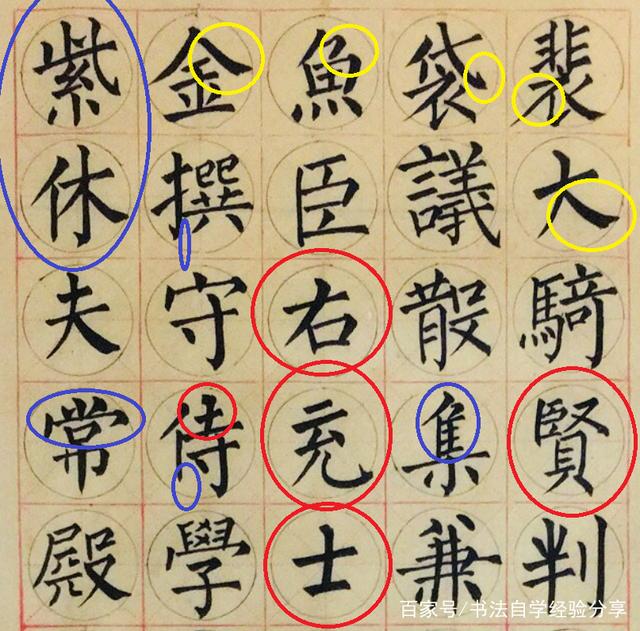 紫金魚袋裴
休撰臣議大
夫守右散騎
常侍充集賢
殿學士兼判
百家号/书法自学经验分享